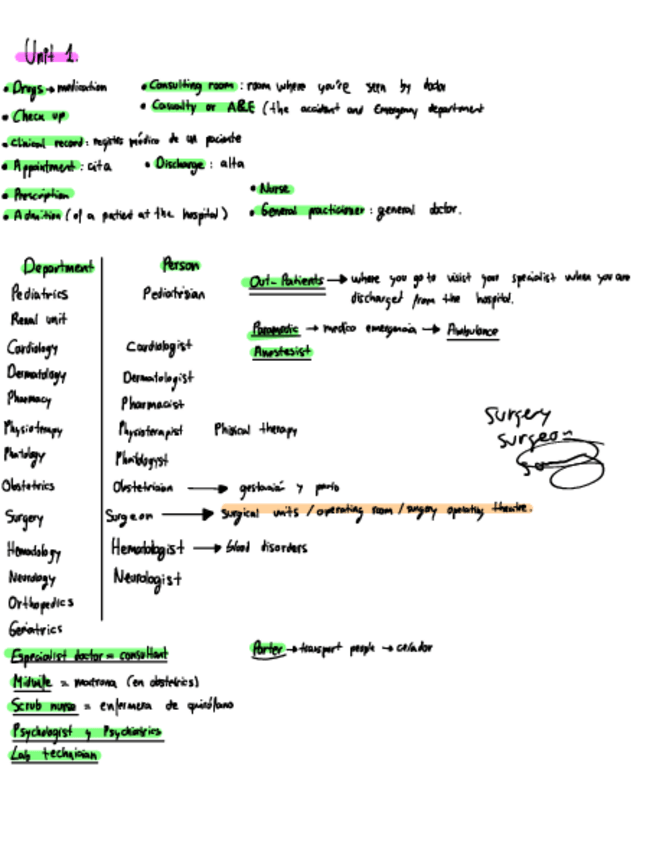 Unit 1.
• Drugs → medication • Consulting room : room where you're seen by doctor
• Check up • Casualty or A&E (the accident and Emergency department
• Clinical record : registro médico de un paciente
• Appointment : cita • Discharge : alta
• Prescription • Nurse
• Admition (of a patient at the hospital) • General practicioner : general doctor.
Department Person
Out-Patients → where you go to visist your specialist when you are
discharged from the hospital.
Pediatrics Pediatrisian
Renal unit
Paramedic → medico emergencia → Ambulance
Anestesist
Cardiology Cardiologist
Dermatology Dermatologist
Pharmacy Pharmacist
Physioterapy Physioterapist Phisical therapy
Surgery
Surgeon
Obstetrics Obstetrician → gestación y parto
Surgery Surgeon → Surgical units / operating room / surgery operating theatre.
Hematology Hematologist → blood disorders
Neurology Neurologist
Orthopedics
Geriatrics
Especialist doctor = consultant
Porter → transport people → celador
Midwife = matrona (en obstetrics)
Scrub nurse = enfermera de quirófano
Psychologist y Psychiatrics
Lab technician